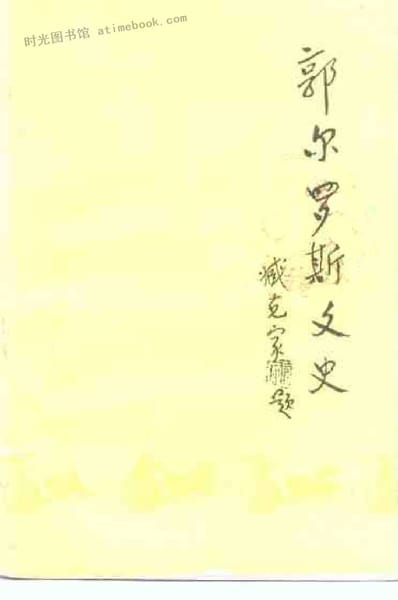 时光图书馆 atimebook.com
郭尔罗斯文史
臧克家题